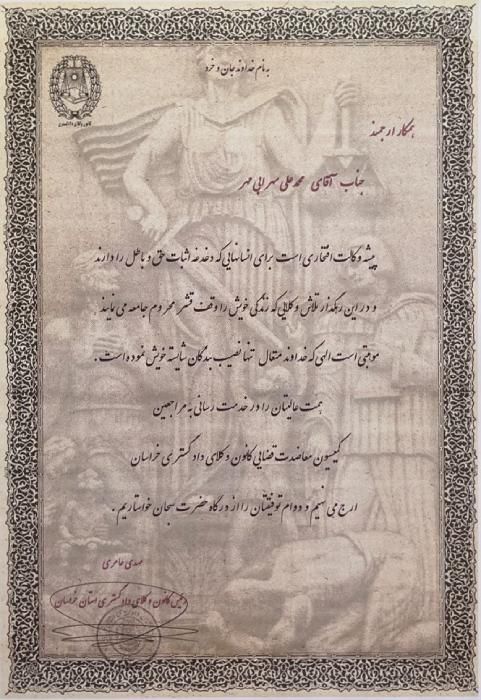 به نام خداوند جان و خرد
کانون وکلای دادگستری
همکار ارجمند
جناب آقای محمد علی سهرابی مهر
پیشه وکالت افتخاری است برای انسانهایی که دغدغه اثبات حق و باطل را دارند
و در این رهگذار تلاش وکلایی که زندگی خویش را وقف قشر محروم جامعه می نمایند
موهبتی است الهی که خداوند متعال تنها نصیب بندگان شایسته خویش نموده است.
همت عالیتان را در خدمت رسانی به مراجعین
کمیسیون معاضدت قضایی کانون وکلای دادگستری خراسان
ارج می نهیم و دوام توفیقتان را از درگاه حضرت سبحان خواستاریم.
مهدی عامری
رئیس کانون وکلای دادگستری استان خراسان